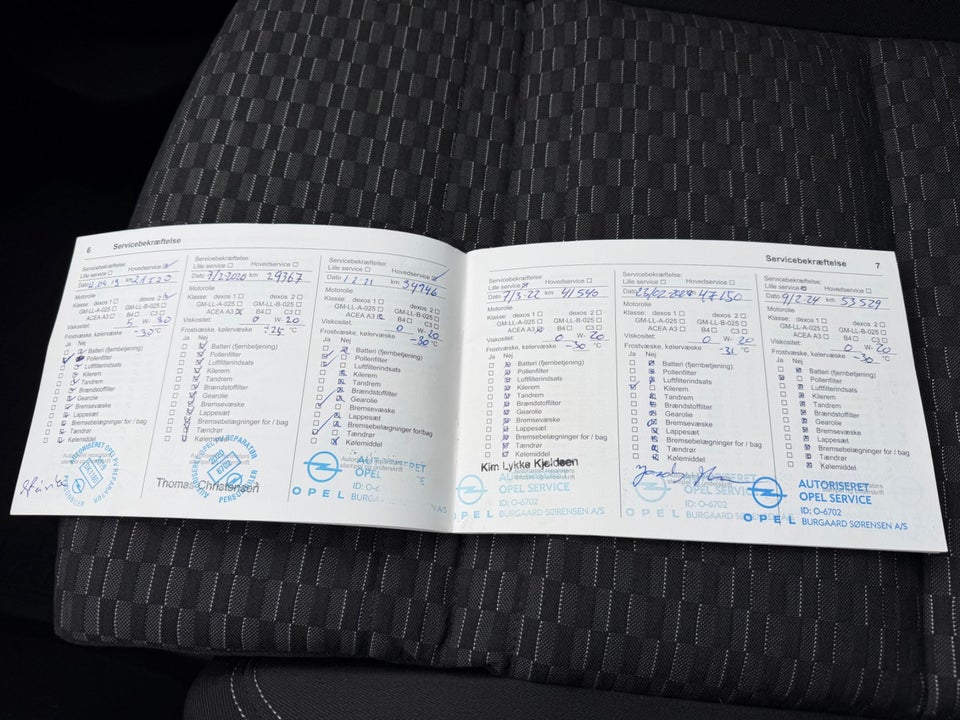 6 Servicebekræftelse
Servicebekræftelse:
Lille service Hovedservice
Dato km 21520
Motorolie
Klasse: dexos 1 dexos 2
GM-LL-A-025 GM-LL-B-025
ACEA A3 B4 C3
Viskositet: 5 W- 30
Frostvæske, kølervæske -30 °C
Ja Nej
Batteri (fjernbetjening)
Pollenfilter
Luftfilterindsats
Kilerem
Tandrem
Brændstoffilter
Gearolie
Bremsevæske
Lappesæt
Bremsebelægninger for / bag
Tændrør
Kølemiddel
Servicebekræftelse:
Lille service Hovedservice
Dato 7/2-2020 km 29367
Motorolie
Klasse: dexos 1 dexos 2
GM-LL-A-025 GM-LL-B-025
ACEA A3 B4 C3
Viskositet: 0 W- 20
Frostvæske, kølervæske -25 °C
Ja Nej
Batteri (fjernbetjening)
Pollenfilter
Luftfilterindsats
Kilerem
Tandrem
Brændstoffilter
Gearolie
Bremsevæske
Lappesæt
Bremsebelægninger for / bag
Tændrør
Kølemiddel
Thomas Christensen
Servicebekræftelse:
Lille service Hovedservice
Dato km 34746
Motorolie
Klasse: dexos 1 dexos 2
GM-LL-A-025 GM-LL-B-025
ACEA A3 B4 C3
Viskositet: 0 W- 20
Frostvæske, kølervæske -30 °C
Ja Nej
Batteri (fjernbetjening)
Pollenfilter
Luftfilterindsats
Kilerem
Tandrem
Brændstoffilter
Gearolie
Bremsevæske
Lappesæt
Bremsebelægninger for / bag
Tændrør
Kølemiddel
AUTORISERET
OPEL
OPEL
Servicebekræftelse 7
Servicebekræftelse:
Lille service Hovedservice
Dato 7/3-22 km 41540
Motorolie
Klasse: dexos 1 dexos 2
GM-LL-A-025 GM-LL-B-025
ACEA A3 B4 C3
Viskositet: 0 W- 20
Frostvæske, kølervæske -30 °C
Ja Nej
Batteri (fjernbetjening)
Pollenfilter
Luftfilterindsats
Kilerem
Tandrem
Brændstoffilter
Gearolie
Bremsevæske
Lappesæt
Bremsebelægninger for / bag
Tændrør
Kølemiddel
Kim Lykke Kjeldsen
AUTORISERET
OPEL SERVICE
ID: O-6702
OPEL BURGAARD SØRENSEN A/S
Servicebekræftelse:
Lille service Hovedservice
Dato km 47150
Motorolie
Klasse: dexos 1 dexos 2
GM-LL-A-025 GM-LL-B-025
ACEA A3 B4 C3
Viskositet: 0 W- 20
Frostvæske, kølervæske -31 °C
Ja Nej
Batteri (fjernbetjening)
Pollenfilter
Luftfilterindsats
Kilerem
Tandrem
Brændstoffilter
Gearolie
Bremsevæske
Lappesæt
Bremsebelægninger for / bag
Tændrør
Kølemiddel
OPEL BURGAARD SØRENSEN
Servicebekræftelse:
Lille service Hovedservice
Dato 9/2 24 km 53529
Motorolie
Klasse: dexos 1 dexos 2
GM-LL-A-025 GM-LL-B-025
ACEA A3 B4 C3
Viskositet: 0 W- 20
Frostvæske, kølervæske -30 °C
Ja Nej
Batteri (fjernbetjening)
Pollenfilter
Luftfilterindsats
Kilerem
Tandrem
Brændstoffilter
Gearolie
Bremsevæske
Lappesæt
Bremsebelægninger for / bag
Tændrør
Kølemiddel
AUTORISERET
OPEL SERVICE
ID: O-6702
OPEL BURGAARD SØRENSEN A/S